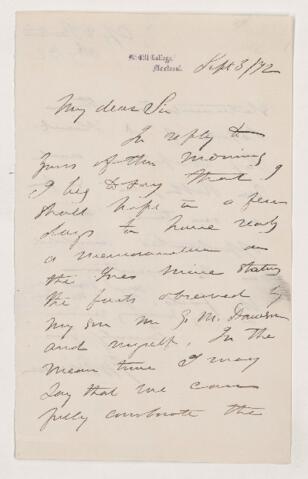 McGill College,
Montreal.
Sept 3/72
My dear Sir
In reply to
yours of this morning
I beg to say that I
shall hope in a few
days to have ready
a memorandum on
the Ives mine stating
the facts observed by
my son Mr G. M. Dawson
and myself. In the
mean time I may
say that we can
fully corroborate the